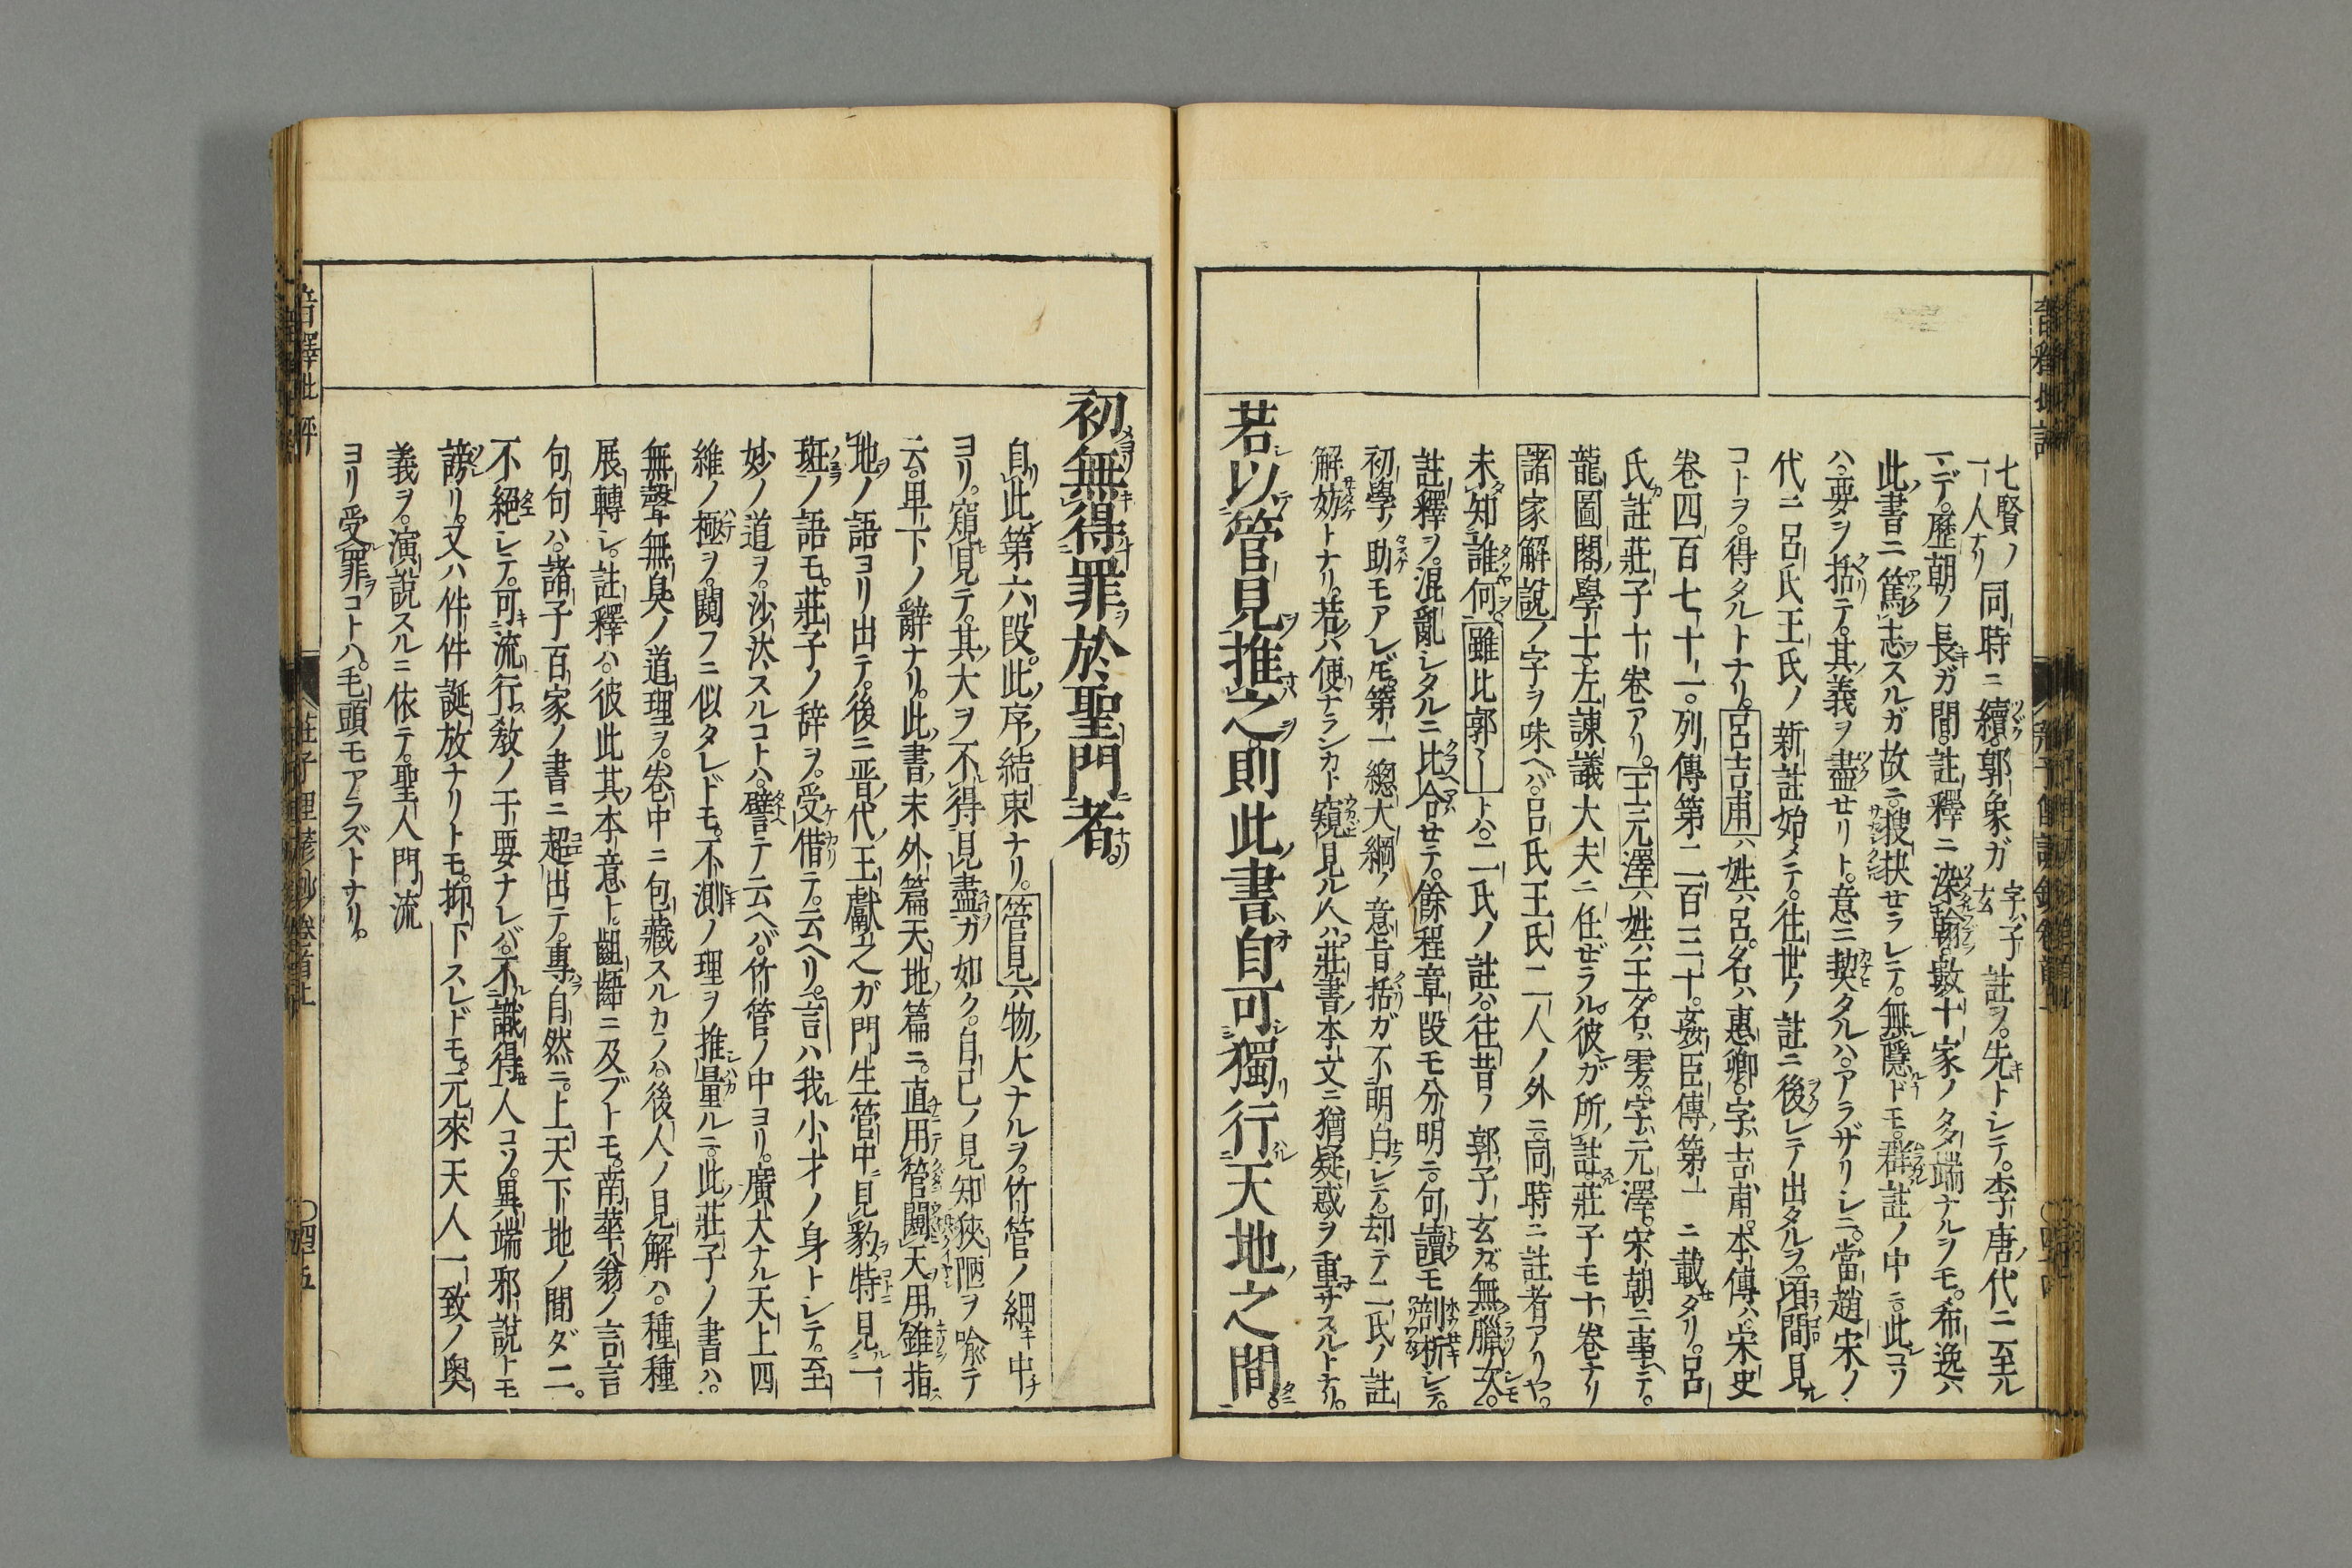 七賢ノ一人ナリ同時ニ續郭象ガ字ハ子玄註ヲ。先トシテ。李唐ノ代ニ至ル
マデ。歷朝ノ長ガ間。註釋ニ染翰數十家ノタメ端ナルヲモ。希逸ハ
此書ニ篤志スルガ故ニ。搜抉セラレテ。無隱ドモ。群註ノ中ニ此コソ
ハ。要ヲ括テ。其義ヲ盡セリト。意ニ契タルハ。アラザリシニ。當趙宋ノ
代ニ呂氏王氏ノ新註始メテ。往世ノ註ニ後レテ出タルヲ。頃間見
コトヲ。得タルトナリ。呂吉甫ハ姓ハ呂。名ハ惠卿。字ハ吉甫。本傳ハ宋史
卷四百七十一。列傳第二百三十。姦臣傳第一ニ載タリ。呂
氏註莊子十卷アリ。王元澤ハ姓ハ王。名ハ雱。字ハ元澤。宋朝ニ事ヘテ。
龍圖閣學士。左諫議大夫ニ任ゼラル。彼ガ所註莊子モ十卷ナリ
諸家解說ノ字ヲ味ヘバ。呂氏王氏二人ノ外ニ同時ニ註者アリヤ。
未知誰何。雖比郭トハ。二氏ノ註ハ。往昔ノ郭子玄ガ。無臘次。
註釋ヲ。混亂シタルニ比合セテ。餘程章段モ分明ニ。句讀モ剖析シテ。
初學ノ助モアレドモ。第一總大綱ノ意旨括ガ不明白シテ。却テ二氏ノ註
解妨トナリ。若ハ便ナランカト窺見ル人ハ。莊書本文ニ猶疑惑ヲ重サスルトナリ。
若以管見推之則此書自可獨行天地之間
初無得罪於聖門者
自此第六段。此序ノ結束ナリ。管見ハ物ノ大ナルヲ。竹管ノ細キ中
ヨリ。窺見テ。其大ヲ不得見盡ガ如ク。自己ノ見知狹陋ヲ喩テ
云。卑下ノ辭ナリ。此書ノ末外篇天地ノ篇ニ。直用管闚天用錐指
地ノ語ヨリ出テ。後ニ晉代ノ王獻之ガ門生管中見豹特見一
斑ノ語モ。莊子ノ辞ヲ。受借テ。云ヘリ。言ハ我小才ノ身トシテ。至
妙ノ道ヲ。沙汰スルコトハ。譬テ云ヘバ。竹管ノ中ヨリ。廣大ナル天上四
維ノ極ヲ。闚フニ似タレドモ。不測ノ理ヲ推量ルニ。此莊子ノ書ハ。
無聲無臭ノ道理ヲ。卷中ニ包藏スルカラハ。後人ノ見解ハ。種種
展轉シ。註釋ハ。彼此其本意ト。齟齬ニ及ブトモ。南華翁ノ言言
句句ハ。諸子百家ノ書ニ超出テ。專自然ニ。上天下地ノ間ダニ。
不絕シテ。可流行敎ノ干要ナレバ。不識得人コソ。異端邪說トモ
謗リ。又ハ件件誕放ナリトモ。抑下スレドモ。元來天人一致ノ奧
義ヲ。演說スルニ依テ。聖人門流
ヨリ受罪コトハ。毛頭モアラズトナリ。